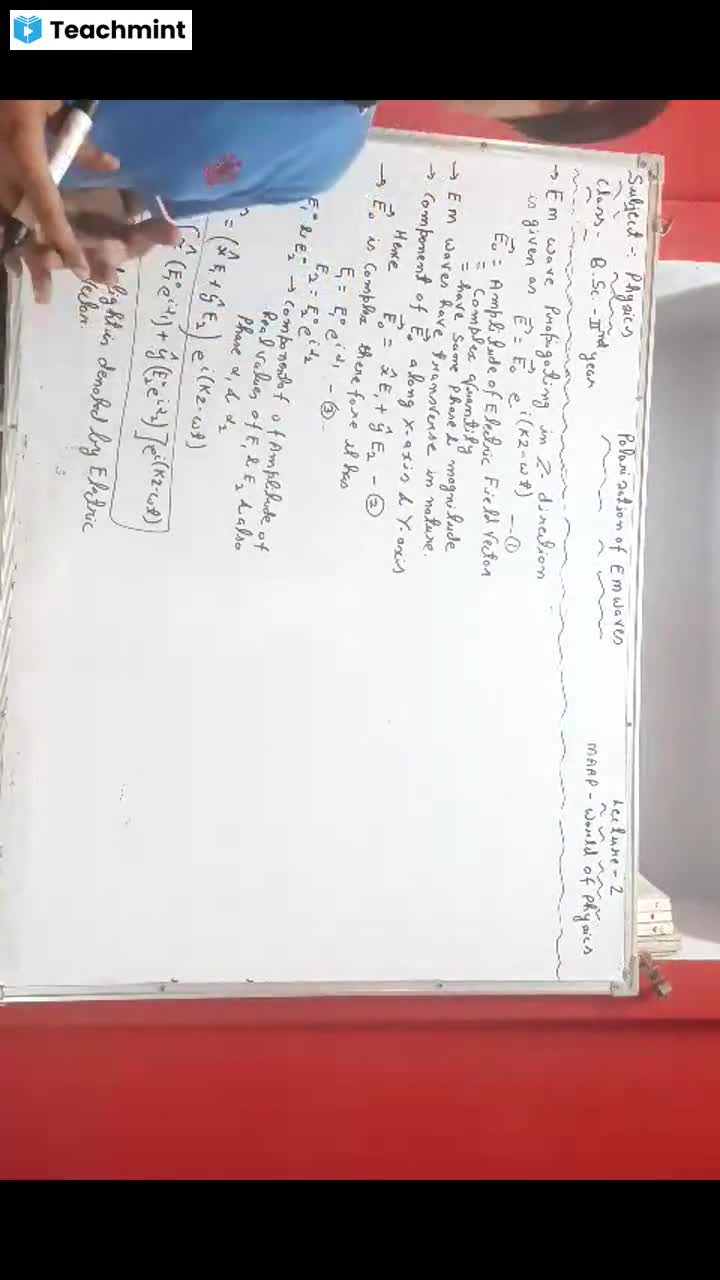 Teachmint
Subject :- Physics
Class - B.Sc. - IInd year
Polarization of EM waves
Lecture - 2
MAAP - World of Physics
→ Em wave Propagating in Z-direction
is given as E⃗ = E⃗₀ e^i(kz-ωt) - ①
E⃗₀ = Amplitude of Electric Field Vector
= Complex quantity
= have same phase & magnitude
→ Em waves have transverse in nature.
→ Component of E⃗₀ along x-axis & Y-axis
Hence E⃗₀ = x̂E₁ + ŷE₂ - ②
→ E⃗₀ is Complex therefore it has
E₁ = E₁⁰ e^iα₁ - ③
E₂ = E₂⁰ e^iα₂
E₁⁰ & E₂⁰ → Component of Amplitude or
Real values of E₁ & E₂ & also
Phase α₁ & α₂
= (x̂E₁ + ŷE₂) e^i(kz-ωt)
(E₁⁰e^iα₁) + ŷ(E₂⁰e^iα₂)] e^i(kz-ωt)
light is denoted by Electric